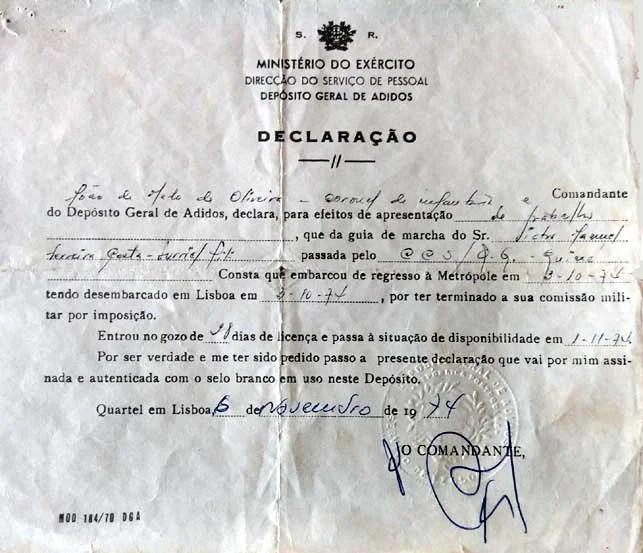 S. R.
MINISTÉRIO DO EXÉRCITO
DIRECÇÃO DO SERVIÇO DE PESSOAL
DEPÓSITO GERAL DE ADIDOS
DECLARAÇÃO
João de Melo de Oliveira - coronel de infantaria e Comandante
do Depósito Geral de Adidos, declara, para efeitos de apresentação de trabalho
, que da guia de marcha do Sr. Victor Manuel
Ferreira Costa - furriel passada pelo CCS/Q.G. - Guiné
Consta que embarcou de regresso à Metrópole em 3-10-74
tendo desembarcado em Lisboa em 3-10-74, por ter terminado a sua comissão mili-
tar por imposição.
Entrou no gozo de 28 dias de licença e passa à situação de disponibilidade em 1-11-74
Por ser verdade e me ter sido pedido passo a presente declaração que vai por mim assi-
nada e autenticada com o selo branco em uso neste Depósito.
Quartel em Lisboa, 6 de Novembro de 1974
O COMANDANTE,
MOD 184/70 DGA